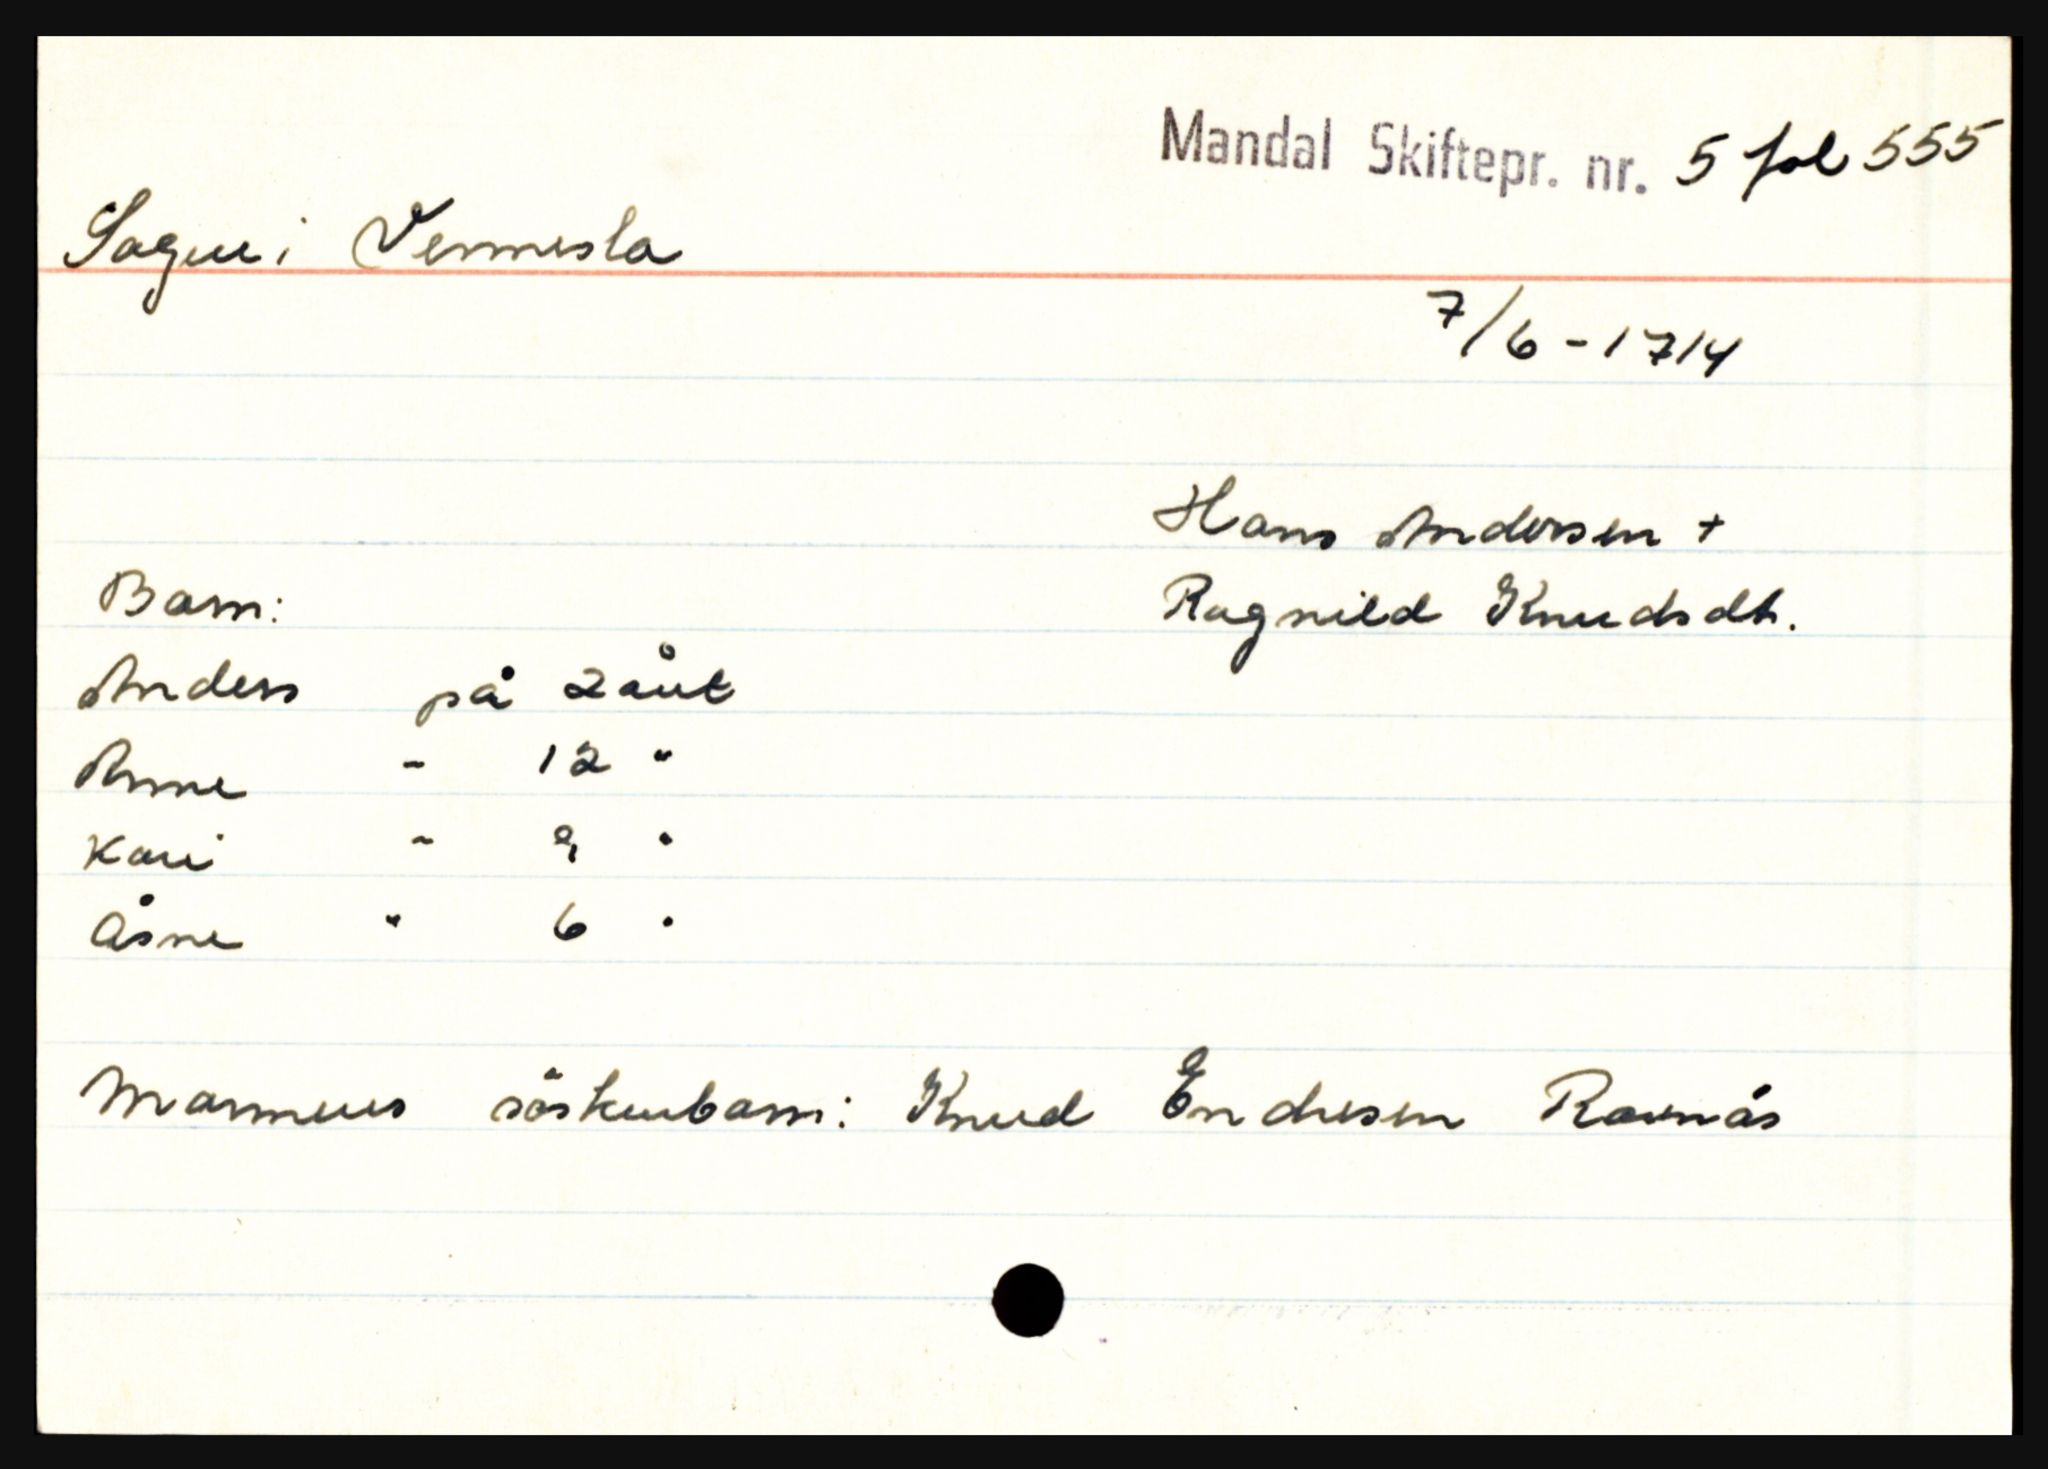 Mandal Skiftepr. nr. 5 fol 555
Sagen i Vennesla
7/6-1714
Hans Andersen +
Ragnild Knudsdt.
Barn:
Anders på 2 året
Anne - 12 "
Kari - 9 "
Åsne " 6 "
Mannens söskenbarn: Knud Endresen Ravnås